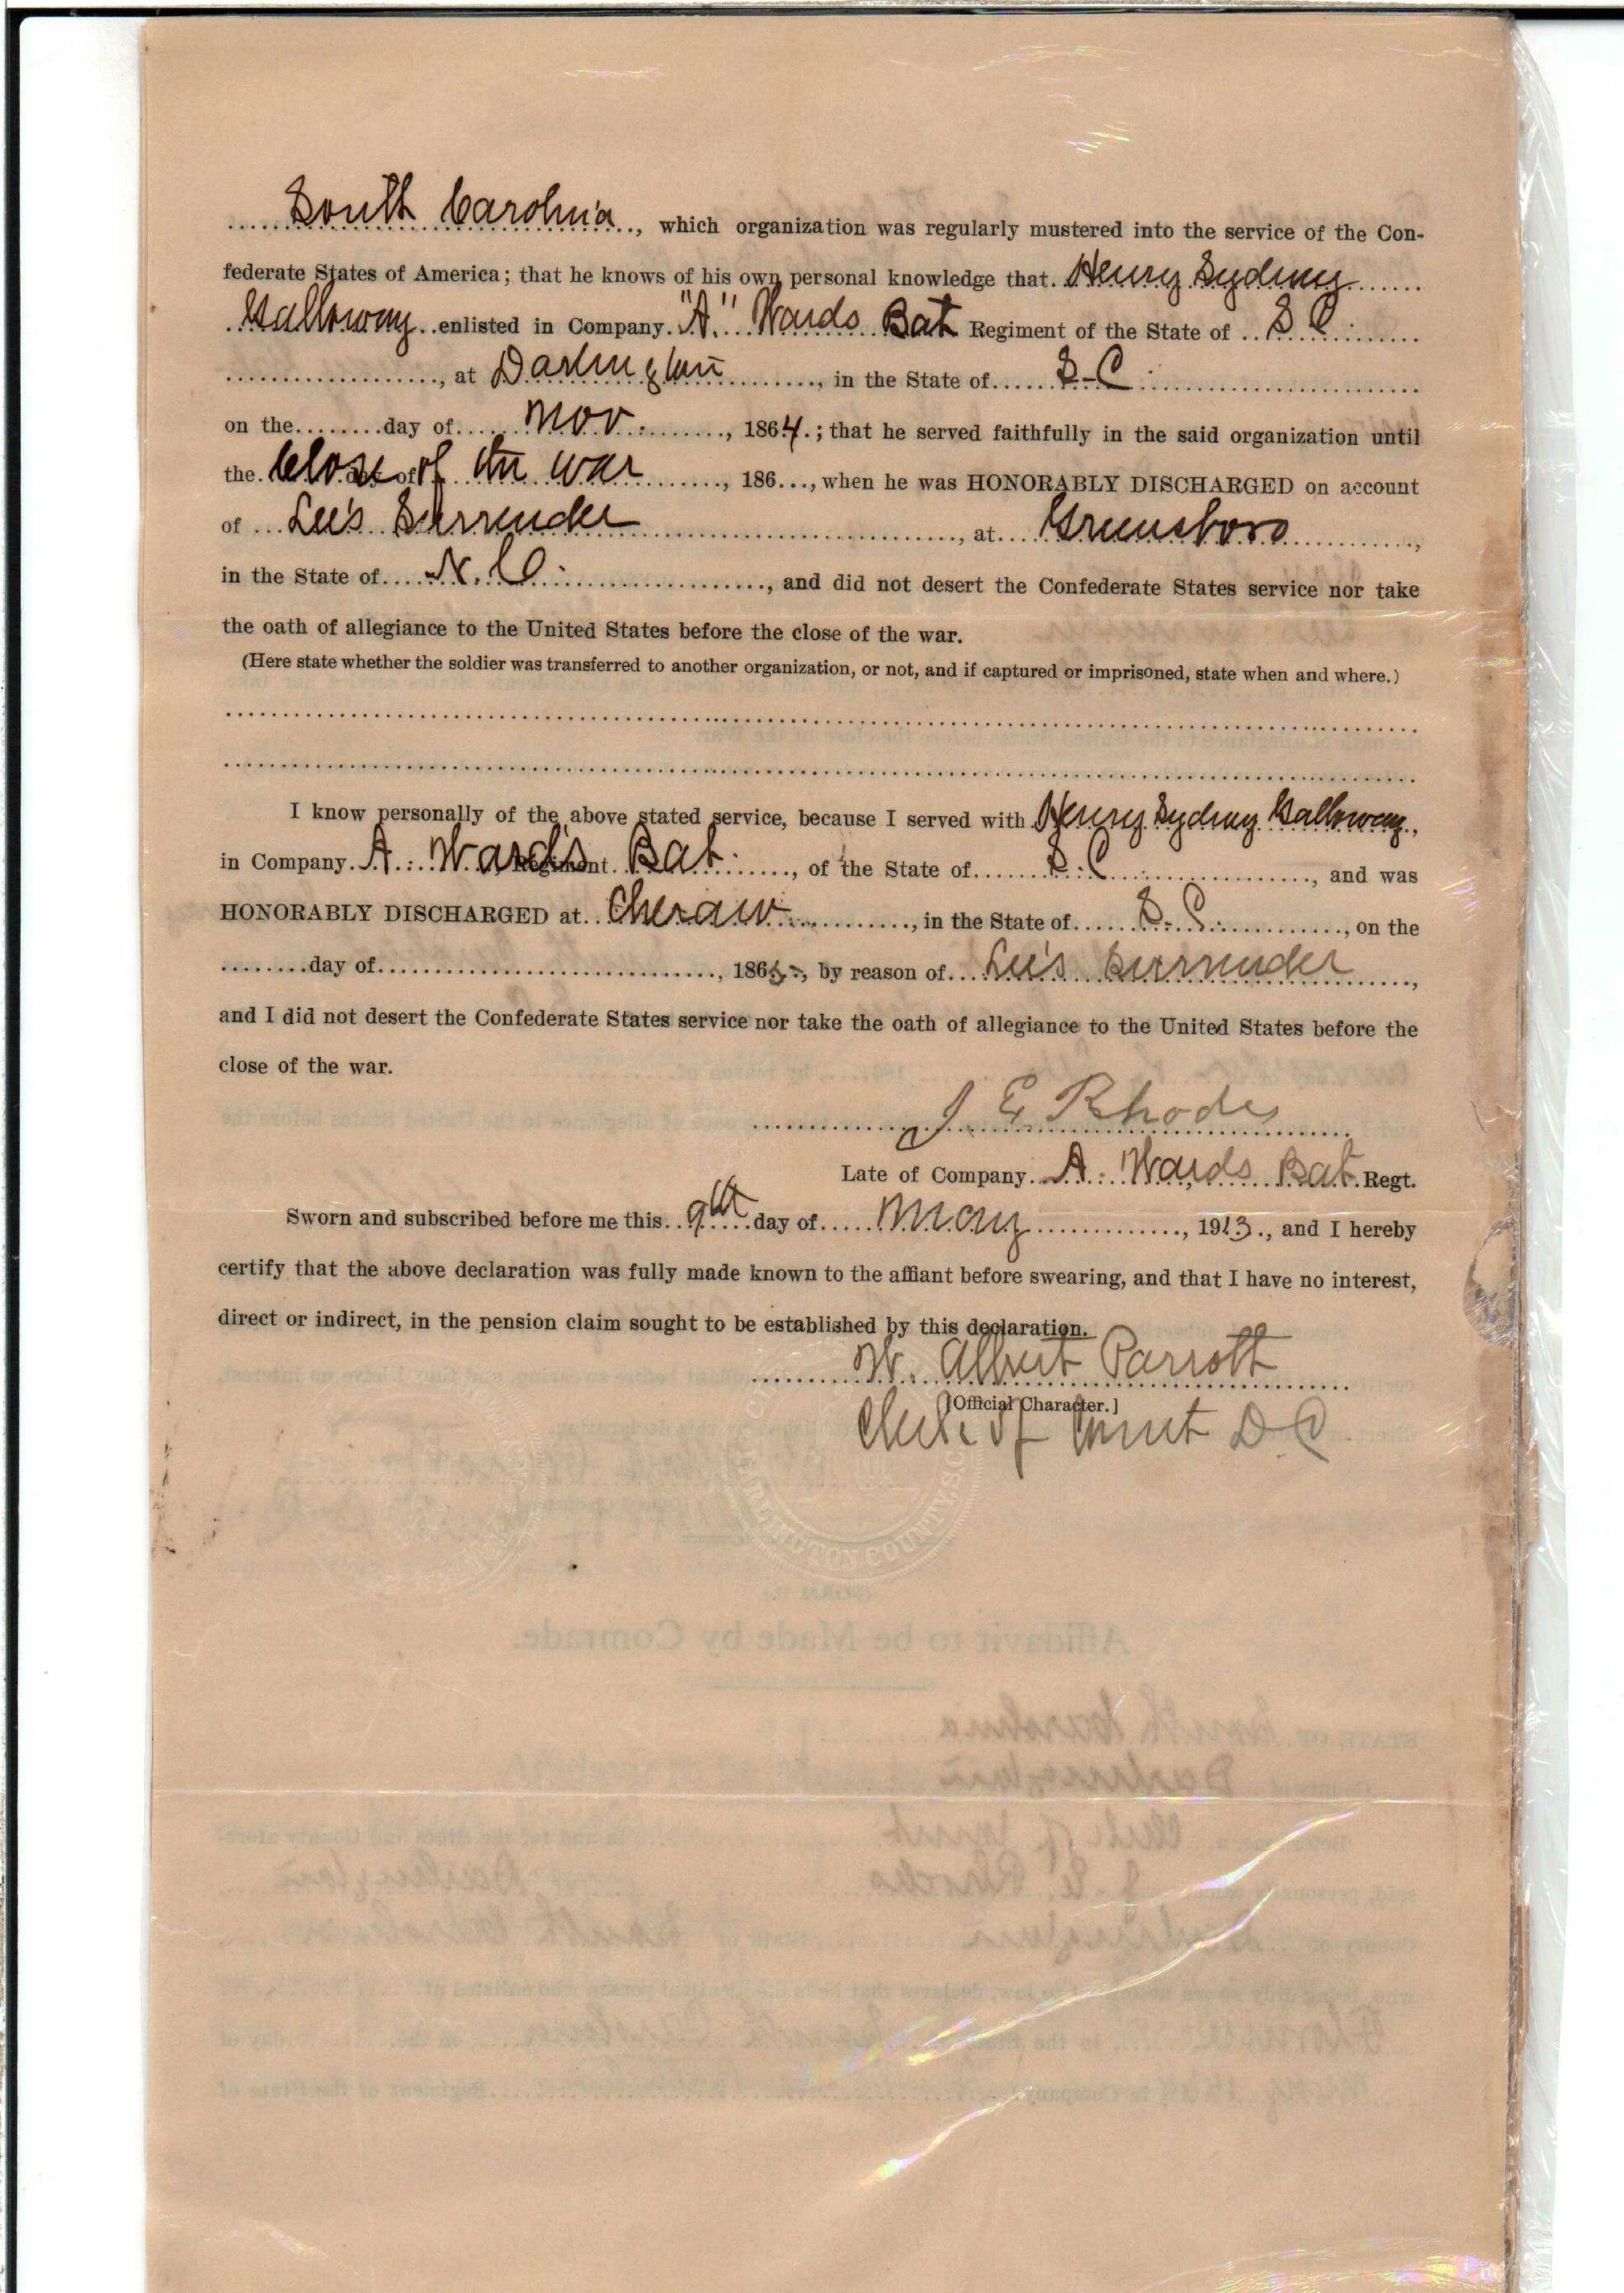 South Carolina, which organization was regularly mustered into the service of the Con-
federate States of America; that he knows of his own personal knowledge that Henry Sydney
Galloway enlisted in Company "A" Wards Bat Regiment of the State of S C.
, at Darlington, in the State of S-C
on the day of Nov., 1864.; that he served faithfully in the said organization until
the Close of the war, 186..., when he was HONORABLY DISCHARGED on account
of Lee's Surrender, at Greensboro,
in the State of N. C., and did not desert the Confederate States service nor take
the oath of allegiance to the United States before the close of the war.
(Here state whether the soldier was transferred to another organization, or not, and if captured or imprisoned, state when and where.)
I know personally of the above stated service, because I served with Henry Sydney Galloway,
in Company A. Ward's Regiment Bat., of the State of S.C., and was
HONORABLY DISCHARGED at Cheraw, in the State of S.C., on the
day of, 1865, by reason of Lee's Surrender,
and I did not desert the Confederate States service nor take the oath of allegiance to the United States before the
close of the war.
J E Rhodes
Late of Company A. Wards Bat Regt.
Sworn and subscribed before me this 9th day of May, 1913., and I hereby
certify that the above declaration was fully made known to the affiant before swearing, and that I have no interest,
direct or indirect, in the pension claim sought to be established by this declaration.
W. Albert Parrott
[Official Character.]
Clerk of Court D C
DARLINGTON COUNTY, S.C.
Affidavit to be Made by Comrade.